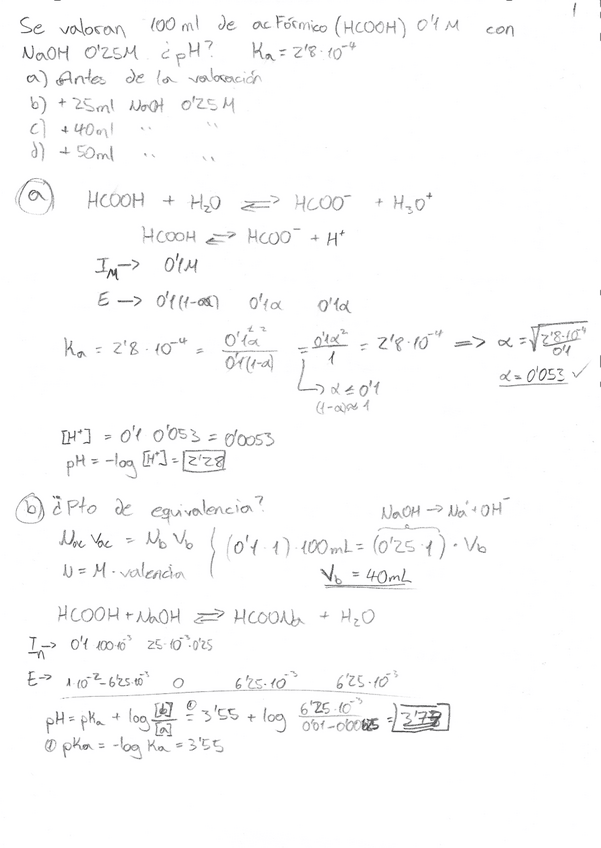 1
Se valoran 100 ml de ac Fórmico (HCOOH) 0'1 M con
NaOH 0'25M ¿pH? Ka = 2'8·10⁻⁴
a) Antes de la valoración
b) + 25ml NaOH 0'25M
c) + 40ml '' ''
d) + 50ml '' ''
a) HCOOH + H₂O ⇌ HCOO⁻ + H₃O⁺
HCOOH ⇌ HCOO⁻ + H⁺
I_M → 0'1M
E → 0'1(1-α) 0'1α 0'1α
Ka = 2'8·10⁻⁴ = 0'1²α²/0'1(1-α) = 0'1α²/1 = 2'8·10⁻⁴ ⇒ α = √(2'8·10⁻⁴/0'1)
α = 0'053 ✓
↳ α ≤ 0'1
(1-α) ≈ 1
[H⁺] = 0'1 0'053 = 0'0053
pH = -log [H⁺] = 2'28
b) ¿Pto de equivalencia? NaOH → Na⁺ + OH⁻
Nac Vac = Nb Vb (0'1·1)·100mL = (0'25·1)·Vb
N = M·valencia Vb = 40mL
HCOOH + NaOH ⇌ HCOONa + H₂O
In → 0'1 100·10⁻³ 25·10⁻³·0'25
E → 1·10⁻²-6'25·10⁻³ 0 6'25·10⁻³ 6'25·10⁻³
pH = pKa + log [b]/[a] ①= 3'55 + log 6'25·10⁻³/ =
① pKa = -log Ka = 3'55